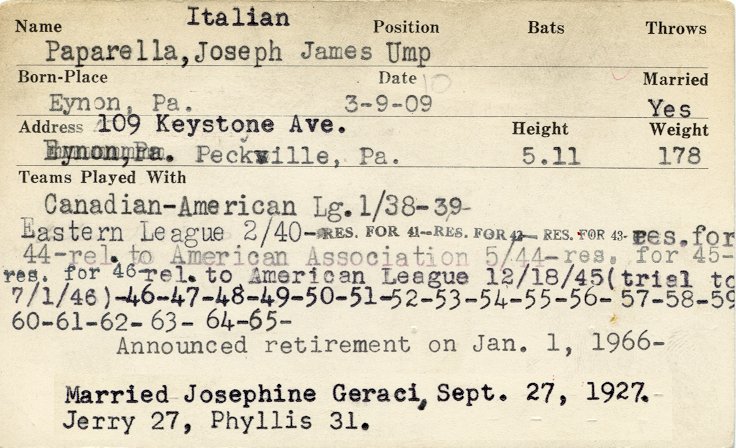 Italian
Name Position Bats Throws
Paparella, Joseph James Ump
Born-Place Date 10 Married
Eynon, Pa. 3-9-09 Yes
Address 109 Keystone Ave. Height Weight
Eynon, Pa. Peckville, Pa. 5.11 178
Teams Played With
Canadian-American Lg. 1/38-39-
Eastern League 2/40-RES. FOR 41-RES. FOR 42- RES. FOR 43- res. for
44-rel. to American Association 5/44-res. for 45-
res. for 46-rel. to American League 12/18/45(trial to
7/1/46)-46-47-48-49-50-51-52-53-54-55-56- 57-58-59
60-61-62- 63- 64-65-
Announced retirement on Jan. 1, 1966-
Married Josephine Geraci, Sept. 27, 1927.
Jerry 27, Phyllis 31.